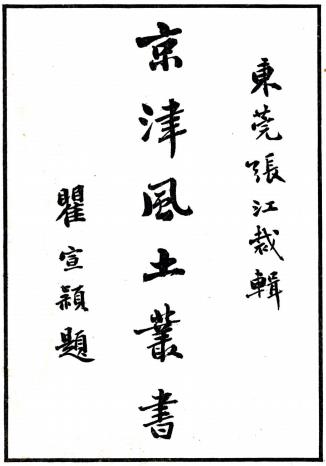 東莞張江裁輯
京津風土叢書
瞿宣穎題